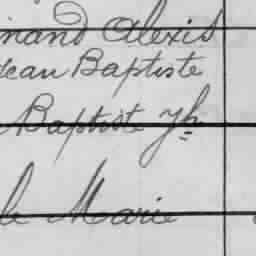 mand Alexis
Jean Baptiste
Baptiste Jh
le Marie